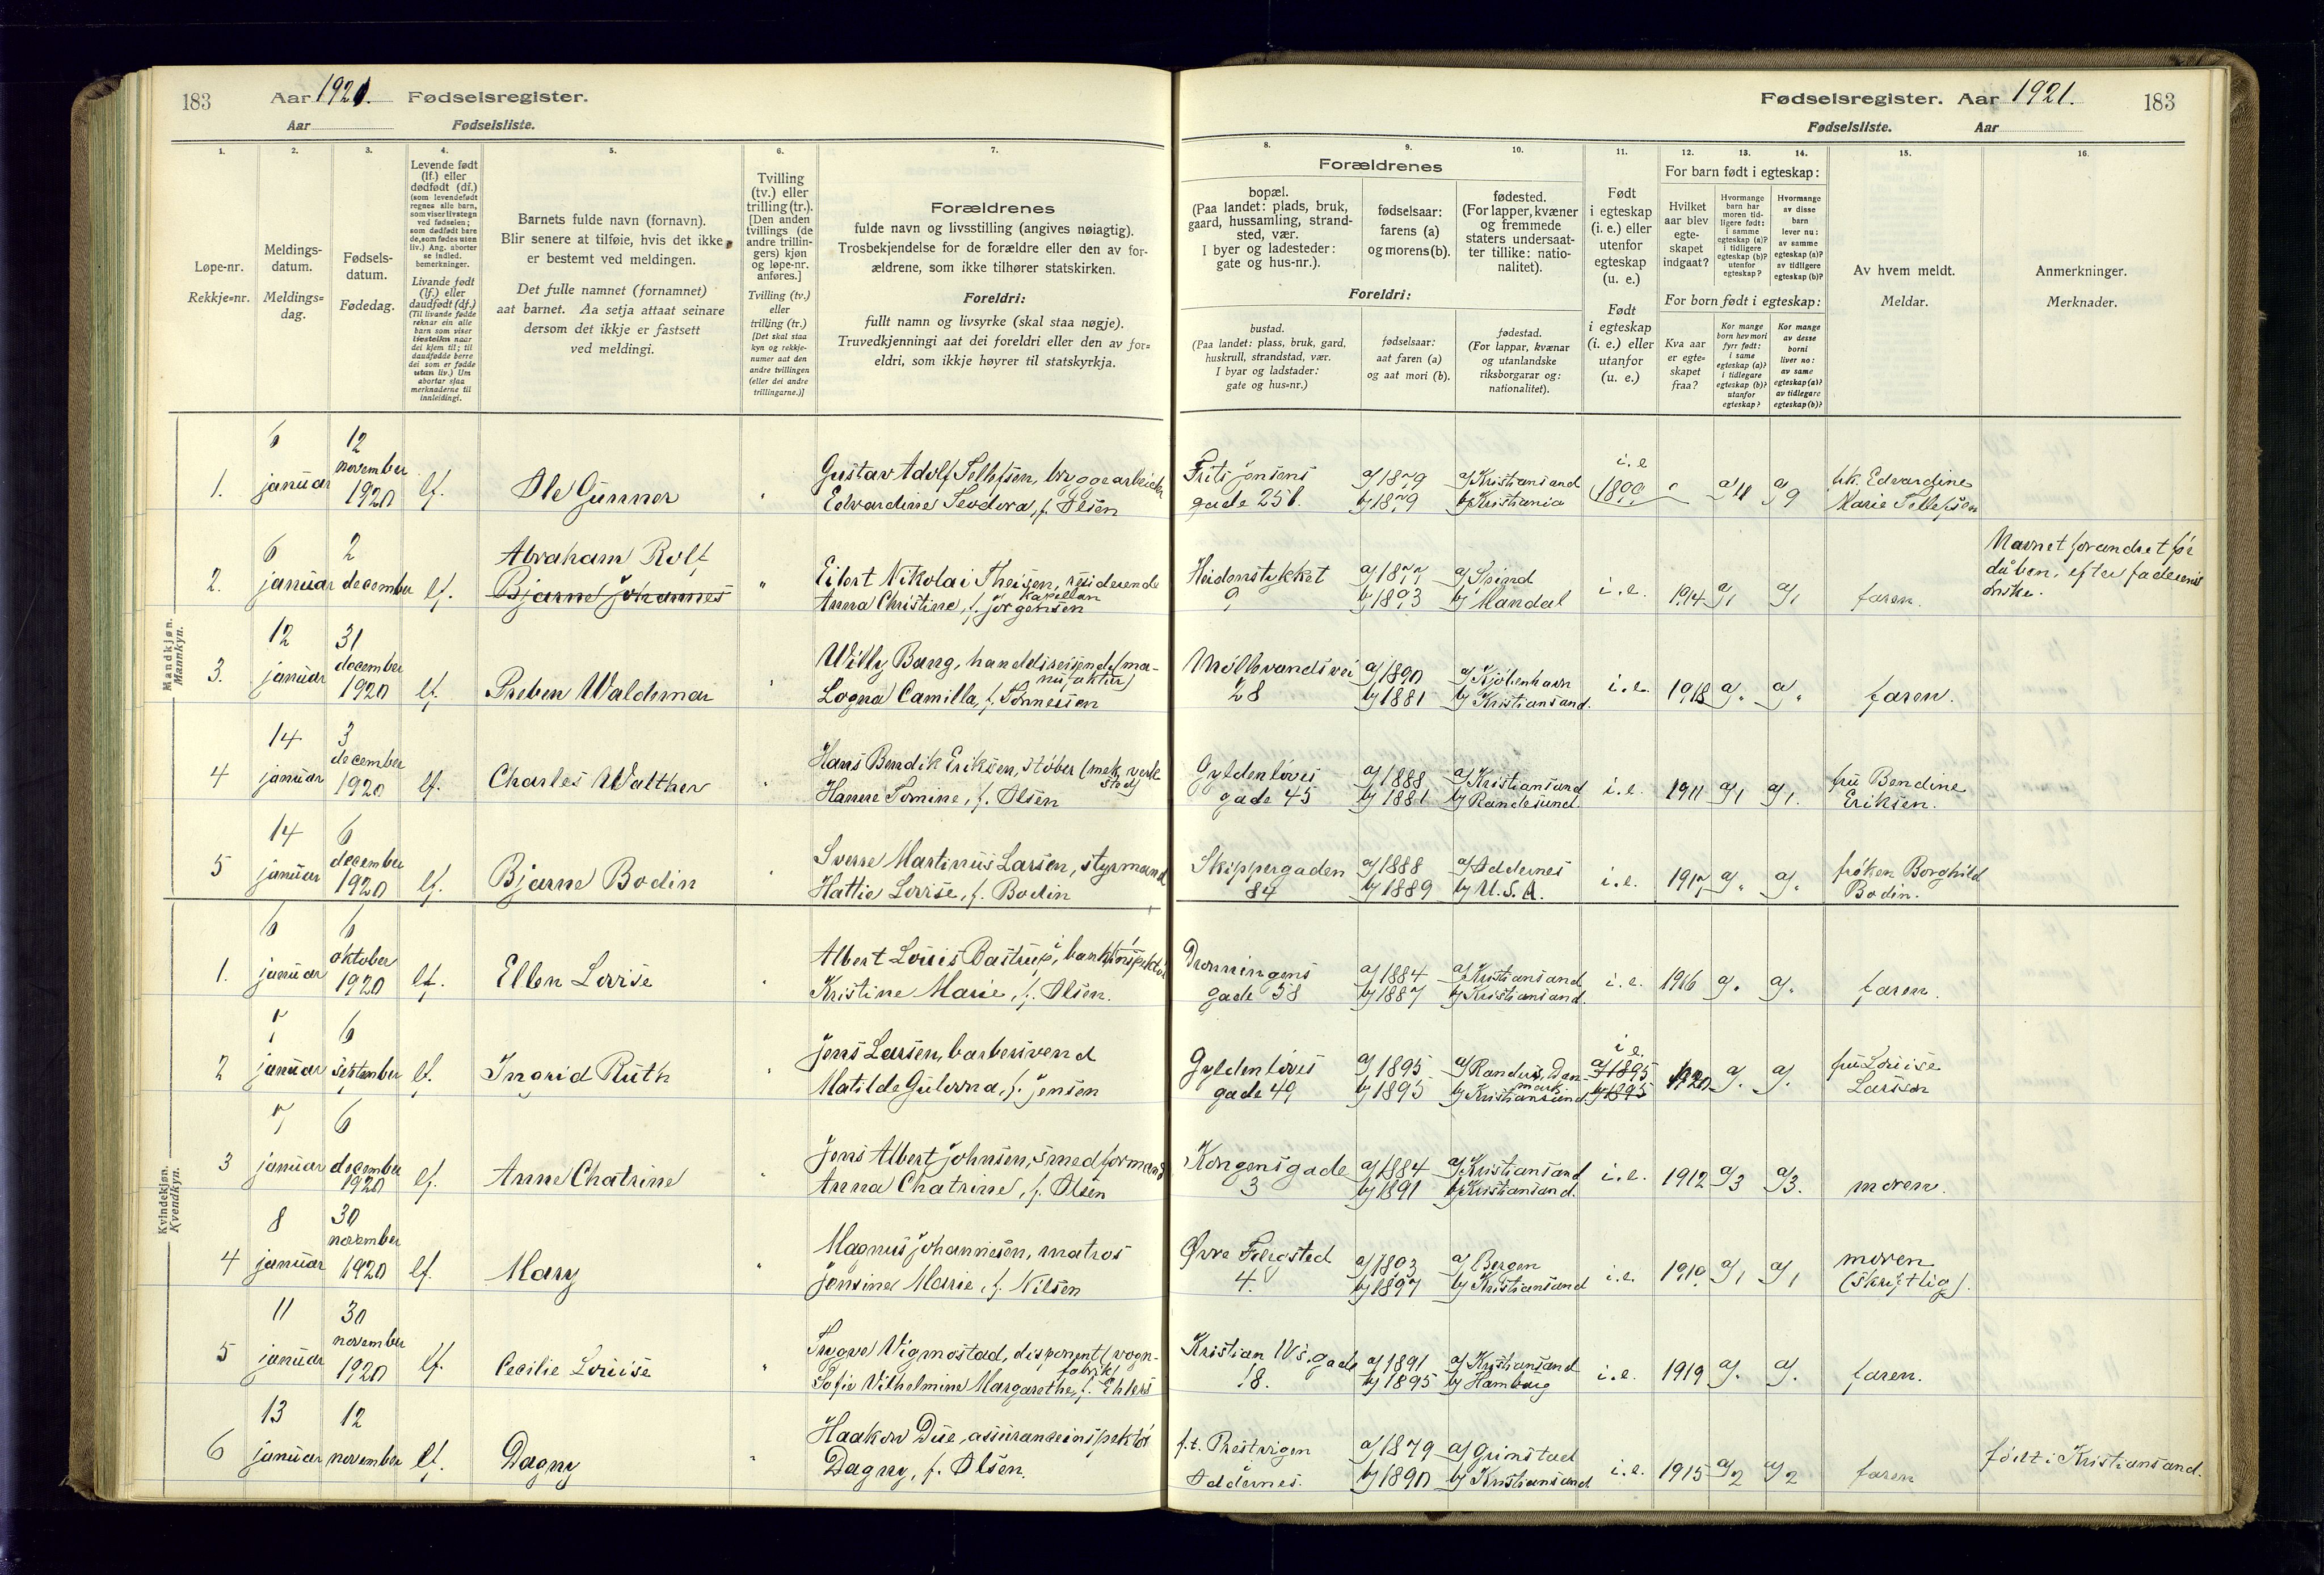 183 Aar 1921. Fødselsregister.
Aar Fødselsliste.
Fødselsregister. Aar 1921. 183
Fødselsliste. Aar
1. 2. 3. 4. 5. 6. 7. 8. 9. 10. 11. 12. 13. 14. 15. 16.
Løpe-nr.
Rekkje-nr.
Meldings-
datum.
Meldings-
dag.
Fødsels-
datum.
Fødedag.
Levende født
(lf.) eller
dødfødt (df.)
(som levendefødt
regnes alle barn,
som viser livstegn
ved fødselen;
som dødfødt bare
de, som fødes uten
liv.) Ang. aborter
se indled.
bemerkninger.
Livande født
(lf.) eller
daudfødt (df.)
(Til livande fødde
reknar ein alle
barn som viser
livsteikn naar
dei kjem til; til
daudfødde berre
dei som er fødde
utan liv.) Um
abortar sjaa
merknaderne til
innleidingi.
Barnets fulde navn (fornavn).
Blir senere at tilføie, hvis det ikke
er bestemt ved meldingen.
Det fulle namnet (fornamnet)
aat barnet. Aa setja attaat seinare
dersom det ikkje er fastsett
ved meldingi.
Tvilling
(tv.) eller
trilling (tr.).
[Den anden
tvillings (de
andre trillin-
gers) kjøn
og løpe-nr.
anføres.]
Tvilling (tv.)
eller
trilling (tr.)
[Det skal staa
kyn og rekkje-
numer aat den
andre tvillingen
(eller dei andre
trillingarne.)]
Forældrenes
fulde navn og livsstilling (angives nøiagtig).
Trosbekjendelse for de forældre eller den av for-
ældrene, som ikke tilhører statskirken.
Foreldri:
fullt namn og livsyrke (skal staa nøgje).
Truvedkjenningi aat dei foreldri eller den av for-
eldri, som ikkje høyrer til statskyrkja.
Forældrenes
bopæl.
(Paa landet: plads, bruk,
gaard, hussamling, strand-
sted, vær.
I byer og ladesteder:
gate og hus-nr.).
fødselsaar:
farens (a)
og morens (b).
fødested.
(For lapper, kvæner
og fremmede
staters undersaat-
ter tillike: natio-
nalitet).
Foreldri:
bustad.
(Paa landet: plass, bruk, gard,
huskrull, strandstad, vær.
I byar og ladstader:
gate og hus-nr.)
fødselsaar:
aat faren (a)
og aat mori (b).
fødestad.
(For lappar, kvænar
og utanlandske
riksborgarar og:
nationalitet).
Født
i egteskap
(i. e.) eller
utenfor
egteskap
(u. e.)
Født
i egteskap
(i. e.) eller
utanfor
(u. e.)
For barn født i egteskap:
Hvilket
aar blev
egte-
skapet
indgaat?
Hvormange
barn har
moren tid-
ligere født:
i samme
egteskap (a)?
i tidligere
egteskap (b)?
utenfor
egteskap?
Hvormange
av disse
barn
lever nu:
av samme
egteskap (a)?
av tidligere
egteskap (b)?
For born født i egteskap:
Kva aar
er egte-
skapet
fraa?
Kor mange
born hev mori
fyrr født:
i same
egteskap (a)?
i tidlegare
egteskap (b)?
utanfor
egteskap?
Kor mange
av desse
borni
liver no:
av same
egteskap (a)?
av tidlegare
egteskap (b)?
Av hvem meldt.
Meldar.
Anmerkninger.
Merknader.
Mandkjøn.
Mannkyn.
1. 6 januar 12 november 1920 lf. Ole Gunner " Gustav Adolf Tellefsen, bryggearbeider
Edvardine Teodora, f. Olsen
Frits Jensens gade 25 b. a/ 1879 b/ 1879 a/ Kristiansand b/ Kristiania i. e 1899 a/ 11 a/ 9 frk. Edvardine
Marie Tellefsen
2. 6 januar 2 december lf. Abraham Rolf
Bjarne Johannes " Eilert Nikolai Theisen, residerende
kapellan
Anna Christine, f. Jørgensen
9 a/ 1877 b/ 1893 a/ Spind b/ Mandal i. e. 1914 a/ 1 a/ 1 faren.
Navnet forandret før
dåben, efter faderens
ønske.
3. 12 januar 31 december 1920 lf. Preben Waldemar " Willy Bang, handelsreisende (ma-
nufaktur)
Logna Camilla, f. Tønnessen
28 a/ 1890 b/ 1881 a/ Kjøbenhavn b/ Kristiansand. i. e. 1918 a/ " a/ " faren.
4 14 januar 3 december 1920 lf. Charles Walther " Hans Bendik Eriksen, støber (mek. verk-
sted)
Hanne Tomine, f. Olsen
Gyldenløves gade 45 a/ 1888 b/ 1881 a/ Kristiansand b/ Randesund i. e. 1911 a/ 1 a/ 1. fru Bendine
Eriksen.
5 14 januar 6 december 1920 lf. Bjarne Bodin " Sverre Martinius Larsen, styrmand
Hattie Lovise, f. Bodin
Skippergaden 84 a/ 1888 b/ 1889 a/ Oddernes b/ U.S.A. i. e. 1917 a/ " a/ " frøken Borghild
Bodin.
Kvindekjøn.
Kvendkyn.
1. 6 januar 6 oktober 1920 lf. Ellen Lovise " Albert Louis Bastrup, bankinspektør
Kristine Marie, f. Olsen.
Dronningens gade 58 a/ 1884 b/ 1887 a/ Kristiansand b/ Kristiansand. i. e. 1916 a/ " a/ " faren.
2 7 januar 6 september lf. Ingrid Ruth " Jens Larsen, barbersvend
Matilde Gulerna, f. Jensen
Gyldenløves gade 49 a/ 1895 b/ 1895 a/ Randers, Dan-
mark
b/ Kristiansand. i. e. a/ 1895 b/ 1895 1920 a/ " a/ " fru Louise
Larsen
3 7 januar 6 december 1920 lf. Anne Chatrine " Jens Albert Johnsen, smedformand
Anna Chatrine, f. Olsen
Kongensgade 3 a/ 1884 b/ 1891 a/ Kristiansand b/ Kristiansand. i. e. 1912 a/ 3 a/ 3. moren.
4 8 januar 30 november 1920 lf. Mary " Magnus Johannesen, matros
Jonsine Marie, f. Nilsen
4. a/ 1893 b/ 1897 a/ Bergen b/ Kristiansand i. e. 1919 a/ 1 a/ 1 moren
(skriftlig).
5 11 januar 30 november 1920 lf. Cecilie Louise " Trygve Vigmostad, disponent (vogn-
fabrik)
Sofie Vilhelmine Margarethe, f. Ehlers
Kristian IV's gade 18. a/ 1891 b/ 1895 a/ Kristiansand b/ Hamburg i. e. 1919 a/ " a/ " faren.
6 13 januar 12 november lf. Dagny " Haakon Due, assuranseinspektør
Dagny, f. Olsen.
f.t. Prestvigen
Oddernes. a/ 1879 b/ 1890 a/ Grimstad b/ Kristiansand i. e. 1915 a/ 2 a/ 2 faren født i Kristiansand.